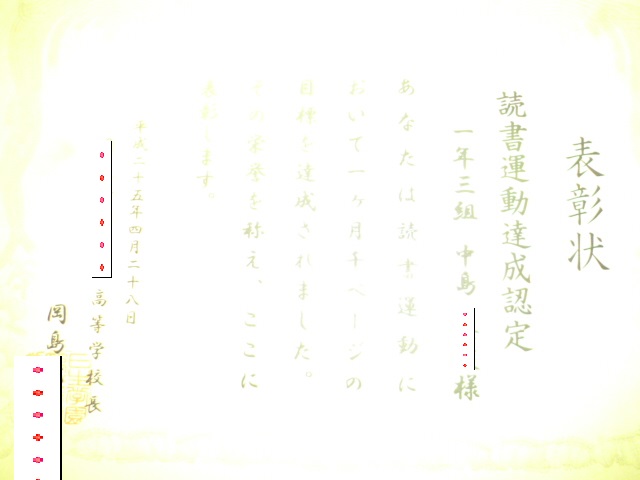 表彰状
読書運動達成認定
一年三組 中島 様
あなたは読書運動に
おいて一ヶ月千ページの
目標を達成されました。
その栄誉を称え、ここに
表彰します。
平成二十五年四月二十八日
高等学校長
岡島